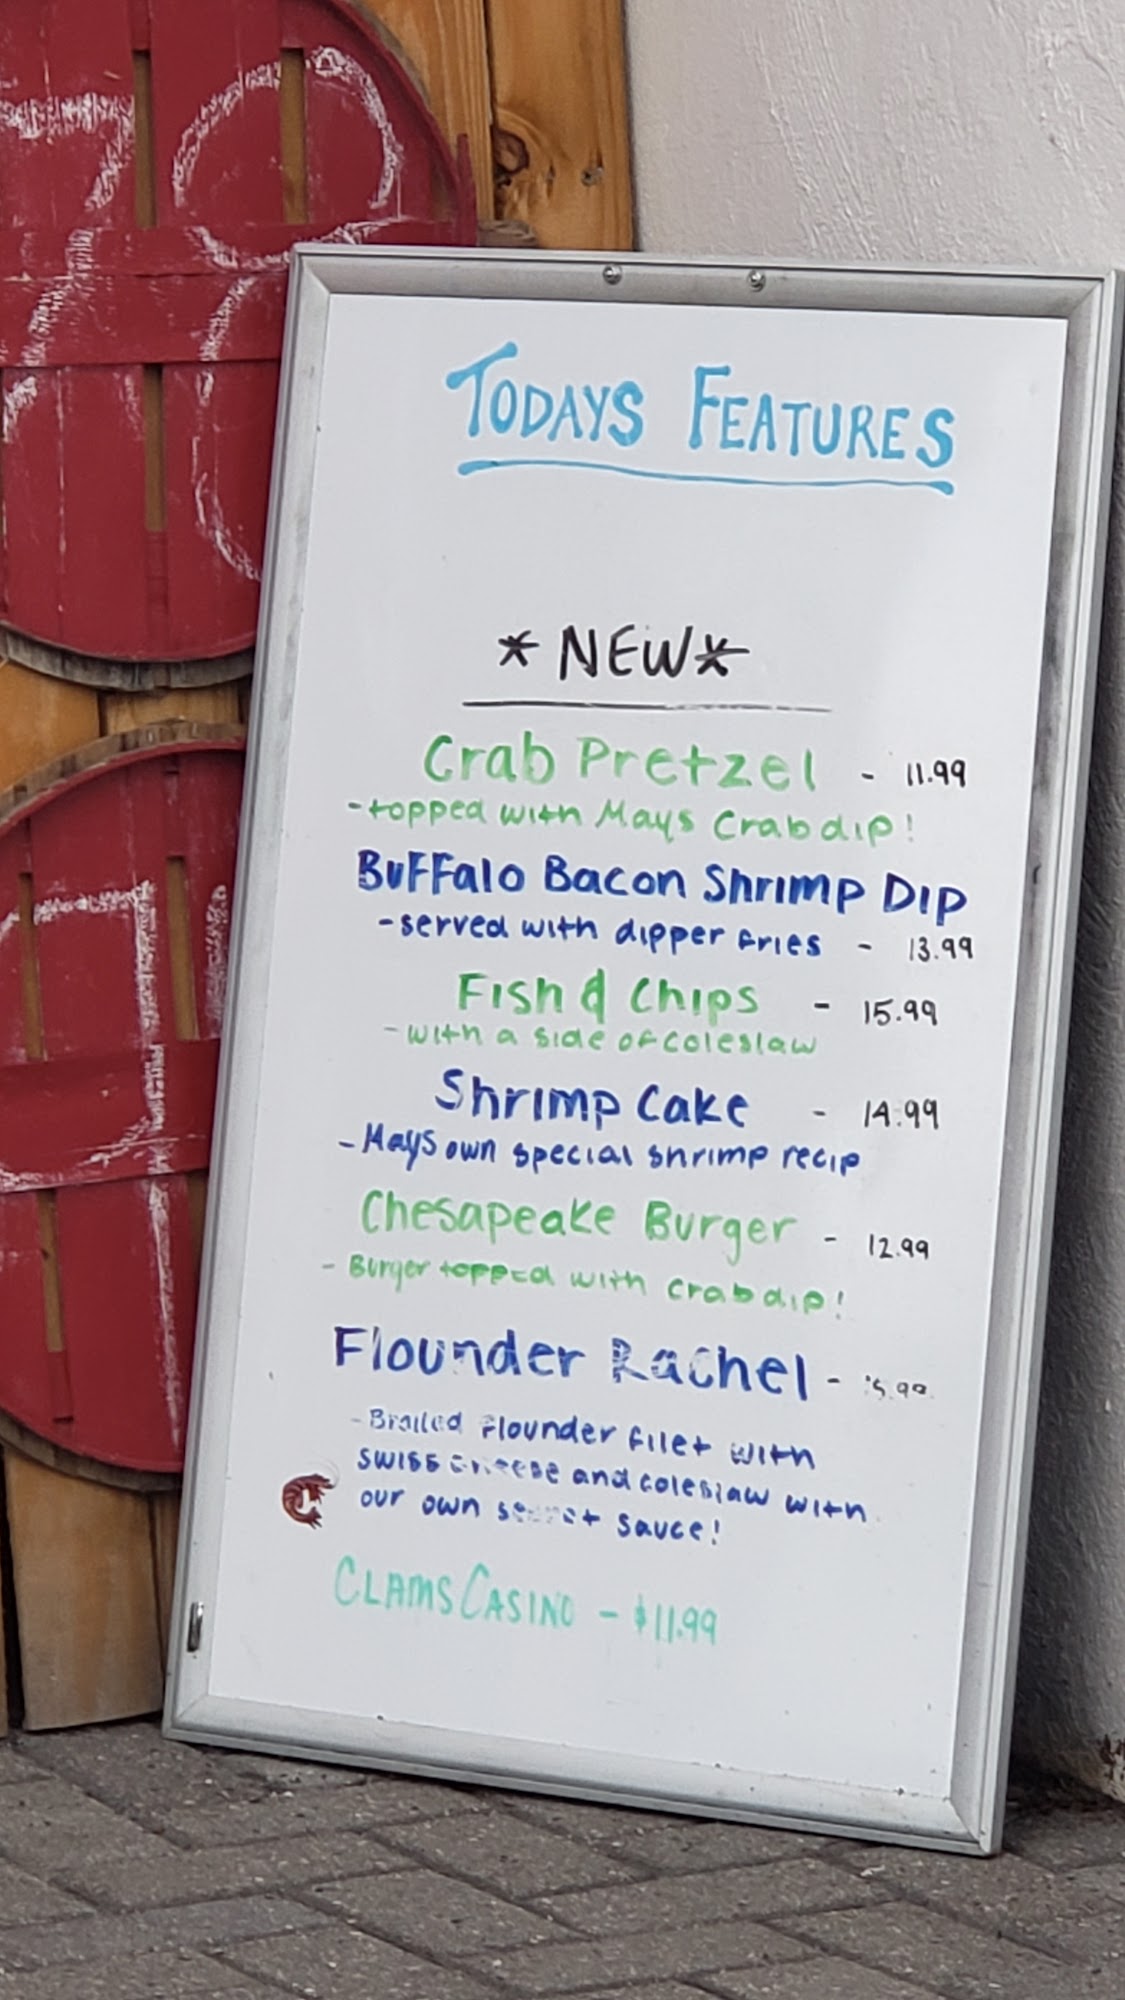 78
TODAYS FEATURES
*NEW*
Crab Pretzel - 11.99
-topped with Mays Crab dip!
Buffalo Bacon Shrimp Dip
-served with dipper fries - 13.99
Fish & Chips - 15.99
-with a side of coleslaw
Shrimp Cake - 14.99
-Mays own special shrimp recip
Chesapeake Burger - 12.99
-Burger topped with crab dip!
Flounder Rachel -
-Broiled Flounder filet with
swiss cheese and coleslaw with
our own secret sauce!
CLAMS CASINO - $11.99